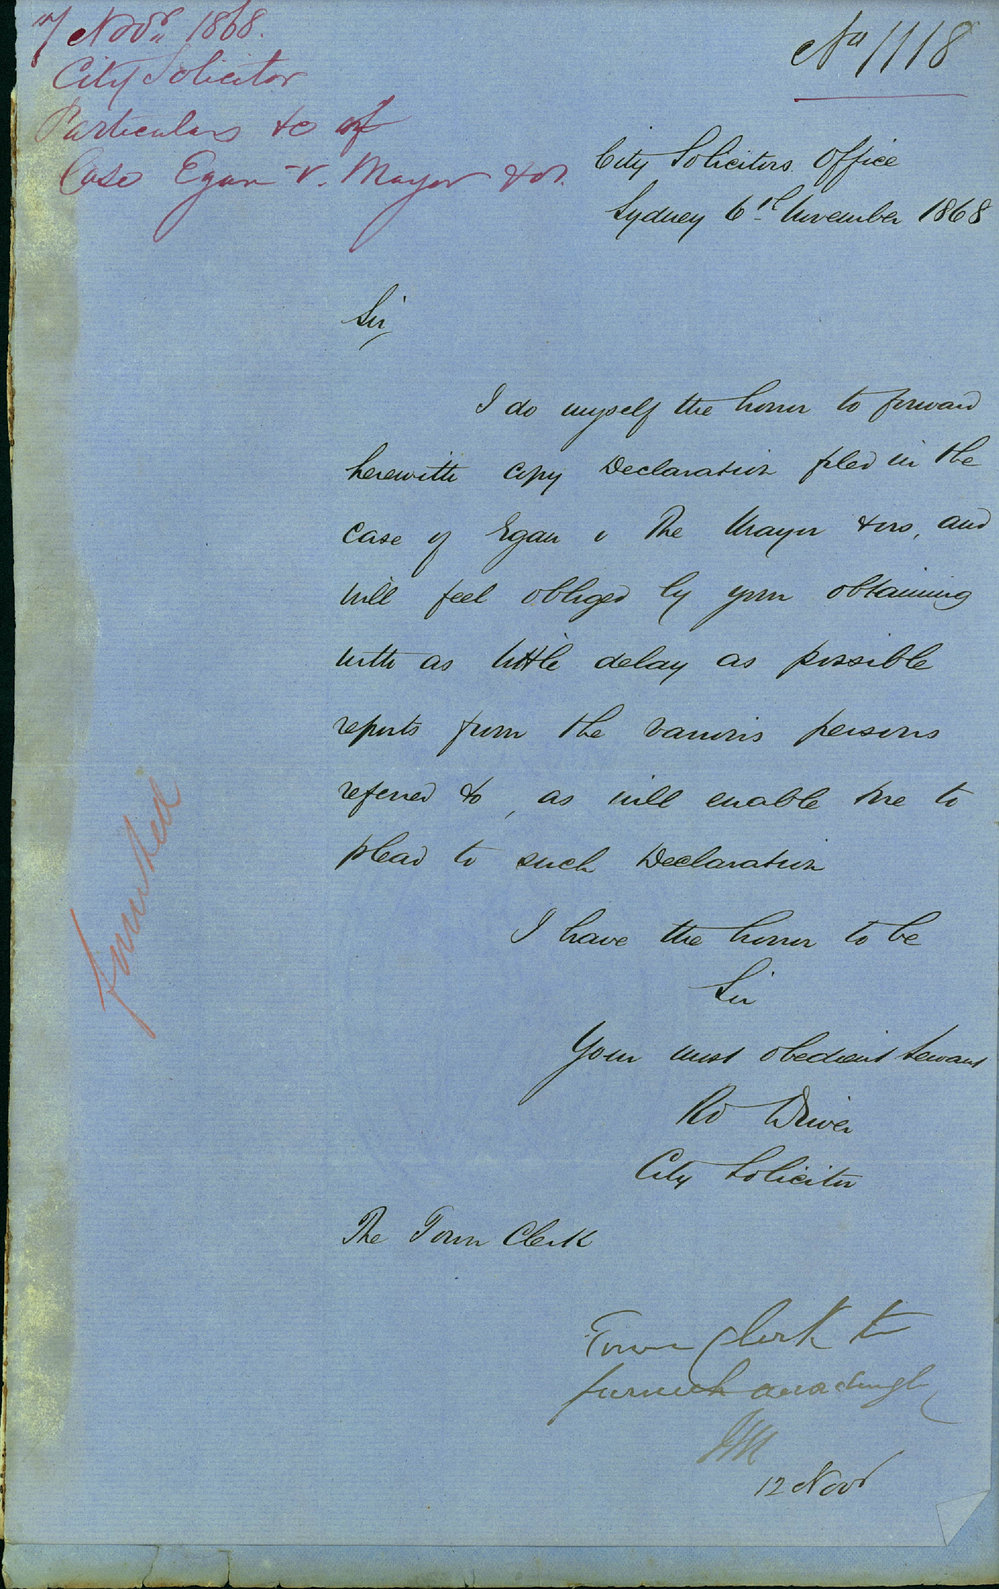 7 Novr. 1868.
City Solicitor
Particulars &c of
Case Egan v. Mayor & ors.
No 1118
City Solicitors Office
Sydney 6th November 1868
Sir,
I do myself the honor to forward
herewith copy Declaration filed in the
case of Egan v The Mayor & ors, and
will feel obliged by your obtaining
with as little delay as possible
reports from the various persons
referred to, as will enable me to
plead to such Declaration
I have the honor to be
Sir
Your most obedient Servant
Rd Driver
City Solicitor
The Town Clerk
furnished
Town Clerk to
furnish accordingly
12 Novr